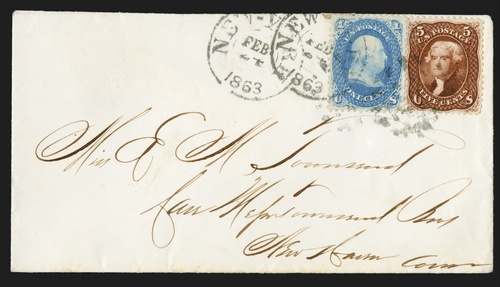 NEW-Y
FEB
1863
NEW
FEB
1863
U.S. POSTAGE
ONE CENT
5 5
U.S. POSTAGE
FIVE CENTS
U S
Miss E M Townsend
Care Messrs Townsend Bros
New Haven Conn